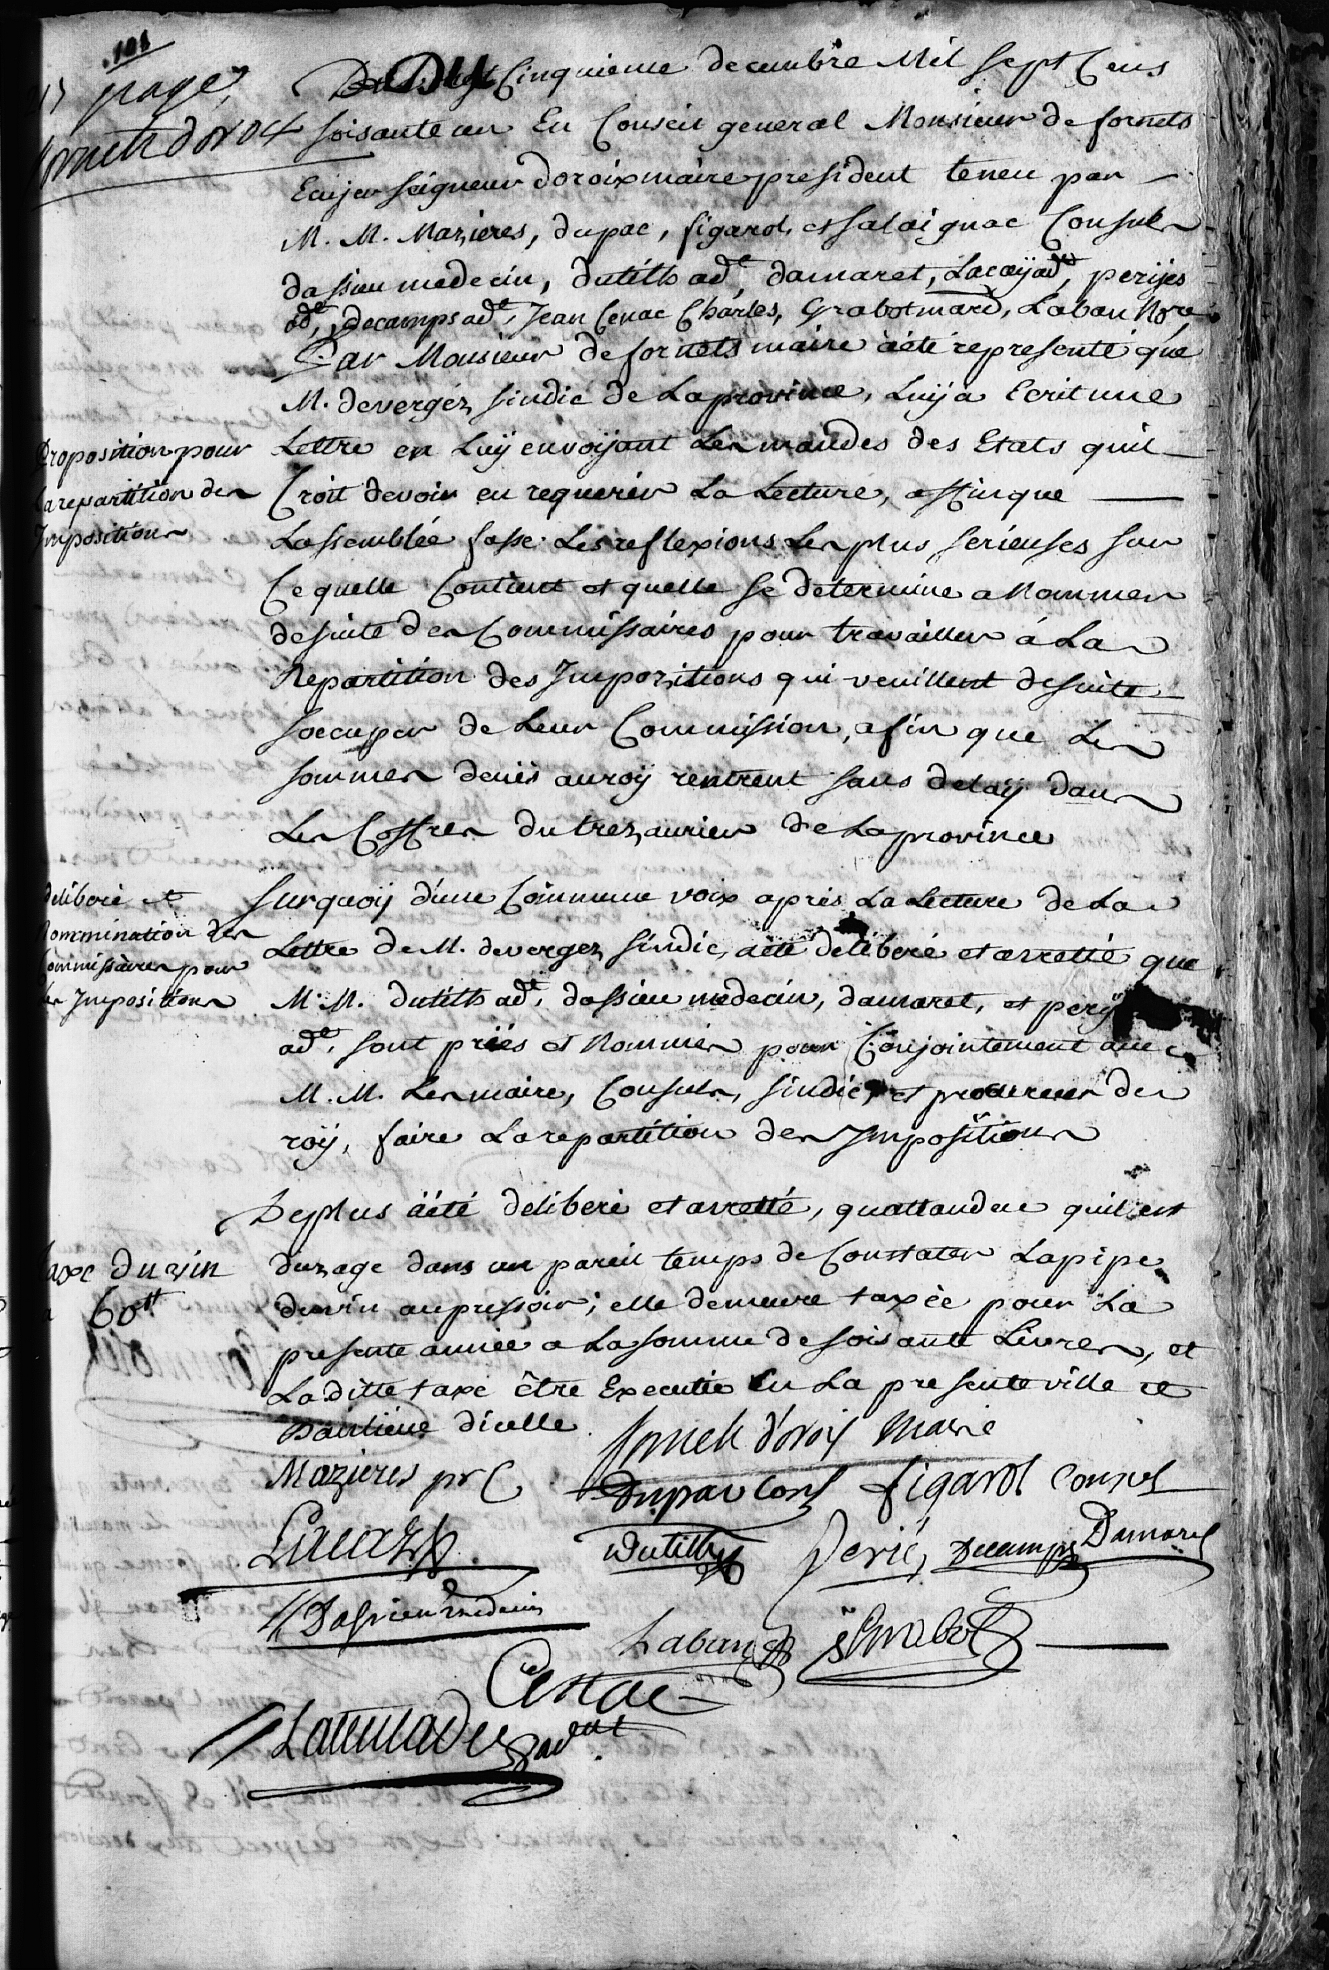 101
page
fornets doroy
Du vingt Cinquieme decembre Mil sept Cens
soisante un En Conseil general Monsieur de fornets
Ecuyer seigneur doroix maire president teneu par
M. M. Mazieres, dupac, figarol, et salaignac Consuls
dassieu medecin, dutilh adt, damaret, Lacaÿ adt, perijes
adt, decamps adt, Jean Cenac Charles, Grabot mard, Laban Nore
Par Monsieur de fornets maire a été representé que
M. devergéz sindic de La province, Luÿ a Ecrit une
Proposition pour
La repartition des
Impositions
Lettre en Luÿ envoÿant Les mandes des Etats quil
Croit devoir en requerir La Lecture, affin que
Lassemblée fasse Les reflexions Les plus serieuses sur
Ce quelle Contient et quelle se determine a Nommer
de suite des Commissaires pour travailler á La
Repartition des Impozitions qui veuillent de suite
soccuper de Leur Commission, afin que Les
sommes deues au roÿ rentrent sans delaÿ dans
Les Coffres du trezaurier de La province
deliberé et
Nommination des
Commissaires pour
les Impositions
surquoÿ d'une Commune voix aprés La Lecture de La
Lettre de M. devergez sindic, a été deliberé et arretté que
M. M. dutilh adt, dassieu medecin, damaret, et perÿ
adt, sont priés et Nommés pour Conjointement avec
M. M. Les maire, Consuls, sindic, et procureur du
roÿ, faire La repartition des Impositions
Taxe du vin
a 60tt
De plus a été deliberé et arretté, quattandeu quil est
duzage dans un pareil temps de Constater La pipe
du vin au pressoir; elle demeure taxée pour La
presente année a La somme de soisante Livres, et
La ditte taxe être Executée En La presente ville et
Banlieue dicelle
fornets d'oroy Maire
Mazieres pr C
Dupac Cons figarol Consul
Lacaze
Dutilh Perié Decamps Damaret
Dassieu medecin
Laban Grabot
Cenac
Lacaulade adt